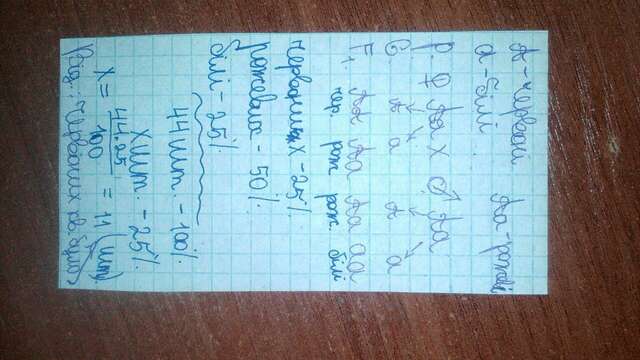 А - червоні Аа - рожеві
а - білі
P. ♀ Аа х ♂ Аа
G. А а А а
F₁. АА Аа Аа аа
чер. рож рож білі
Червоних - 25%
Рожевих - 50%
білі - 25%
44 шт. - 100%
х шт. - 25%
х = 44·25 / 100 = 11 (шт)
Від: червоних